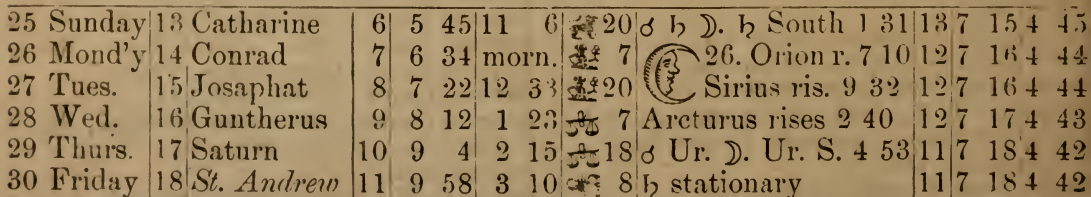 25 Sunday 13 Catharine 6 5 45 11 6 20 ☌ ♄ ☽. ♄ South 1 31 13 7 15 4 45
26 Mond'y 14 Conrad 7 6 34 morn. 7 26. Orion r. 7 10 12 7 16 4 44
27 Tues. 15 Josaphat 8 7 22 12 33 20 Sirius ris. 9 32 12 7 16 4 44
28 Wed. 16 Guntherus 9 8 12 1 23 7 Arcturus rises 2 40 12 7 17 4 43
29 Thurs. 17 Saturn 10 9 4 2 15 18 ☌ Ur. ☽. Ur. S. 4 53 11 7 18 4 42
30 Friday 18 St. Andrew 11 9 58 3 10 8 ♄ stationary 11 7 18 4 42